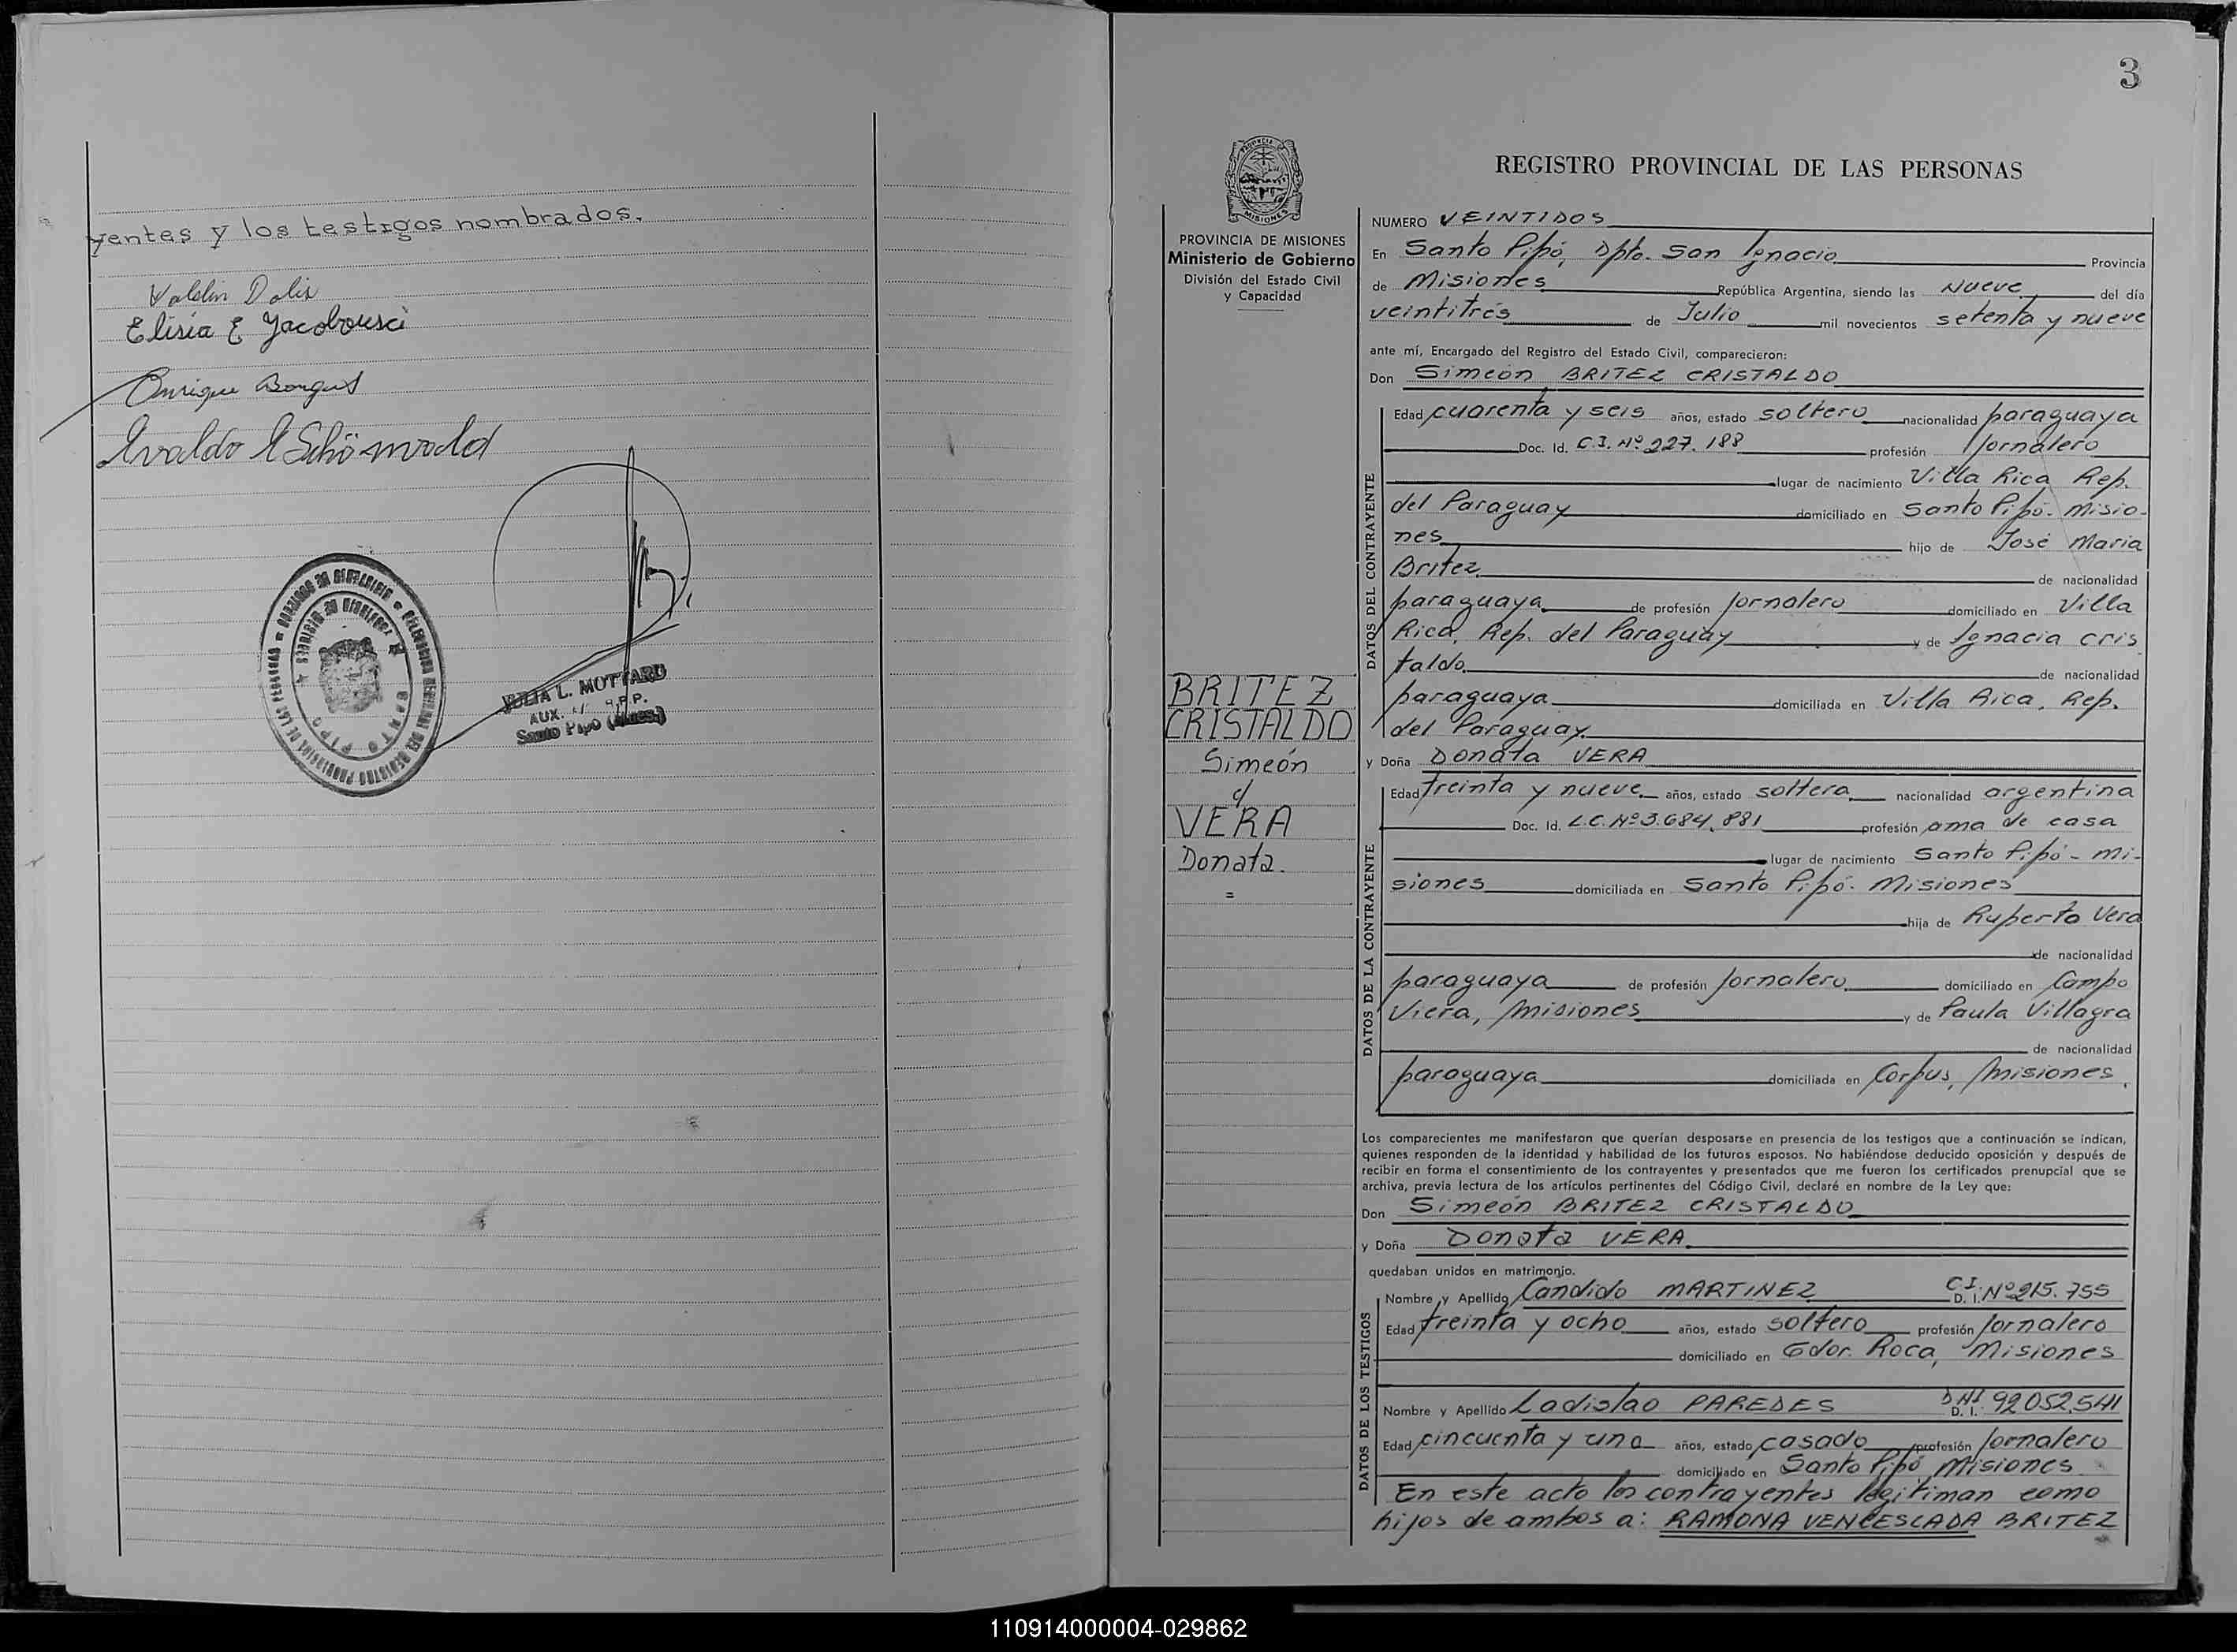 yentes y los testigos nombrados.
Elisia E Jacobousci
Enrique
JULIA L. MOTTARD
AUX.
Santo Pipó (Mnes.)
SANTO PIPO
3
REGISTRO PROVINCIAL DE LAS PERSONAS
PROVINCIA DE MISIONES
Ministerio de Gobierno
División del Estado Civil
y Capacidad
BRITEZ
CRISTALDO
Simeón
c/
VERA
Donata.
=
NUMERO VEINTIDOS
En Santo Pipó, Dpto. San Ignacio Provincia
de Misiones República Argentina, siendo las nueve del día
veintitrés de Julio mil novecientos setenta y nueve
ante mí, Encargado del Registro del Estado Civil, comparecieron:
Don Simeón BRITEZ CRISTALDO
DATOS DEL CONTRAYENTE
Edad cuarenta y seis años, estado soltero nacionalidad paraguaya
Doc. Id. C.I. Nº 227.188 profesión Jornalero
lugar de nacimiento Villa Rica Rep.
del Paraguay domiciliado en Santo Pipó- Misio-
nes hijo de José Maria
Britez de nacionalidad
paraguaya de profesión Jornalero domiciliado en Villa
Rica, Rep. del Paraguay y de Ignacia Cris
taldo de nacionalidad
paraguaya domiciliada en Villa Rica, Rep.
del Paraguay.
y Doña Donata VERA
DATOS DE LA CONTRAYENTE
Edad treinta y nueve años, estado soltera nacionalidad argentina
Doc. Id. L.C. Nº 3.684.881 profesión ama de casa
lugar de nacimiento Santo Pipó- Mi-
siones domiciliada en Santo Pipó- Misiones
hija de Ruperto Vera
de nacionalidad
paraguaya de profesión Jornalero domiciliado en Campo
Viera, Misiones y de Paula Villagra
de nacionalidad
paraguaya domiciliada en Corpus, Misiones.
Los comparecientes me manifestaron que querían desposarse en presencia de los testigos que a continuación se indican,
quienes responden de la identidad y habilidad de los futuros esposos. No habiéndose deducido oposición y después de
recibir en forma el consentimiento de los contrayentes y presentados que me fueron los certificados prenupcial que se
archiva, previa lectura de los artículos pertinentes del Código Civil, declaré en nombre de la Ley que:
Don Simeón BRITEZ CRISTALDO
y Doña Donata VERA
quedaban unidos en matrimonio.
DATOS DE LOS TESTIGOS
Nombre y Apellido Candido MARTINEZ D. I. C.I. Nº 215.755
Edad treinta y ocho años, estado soltero profesión Jornalero
domiciliado en Gdor. Roca, Misiones
Nombre y Apellido Ladislao PAREDES D. I. DNI 92052.541
Edad cincuenta y uno años, estado casado profesión Jornalero
domiciliado en Santo Pipó Misiones
En este acto los contrayentes legitiman como
hijos de ambos a: RAMONA VENCESLADA BRITEZ
110914000004-029862